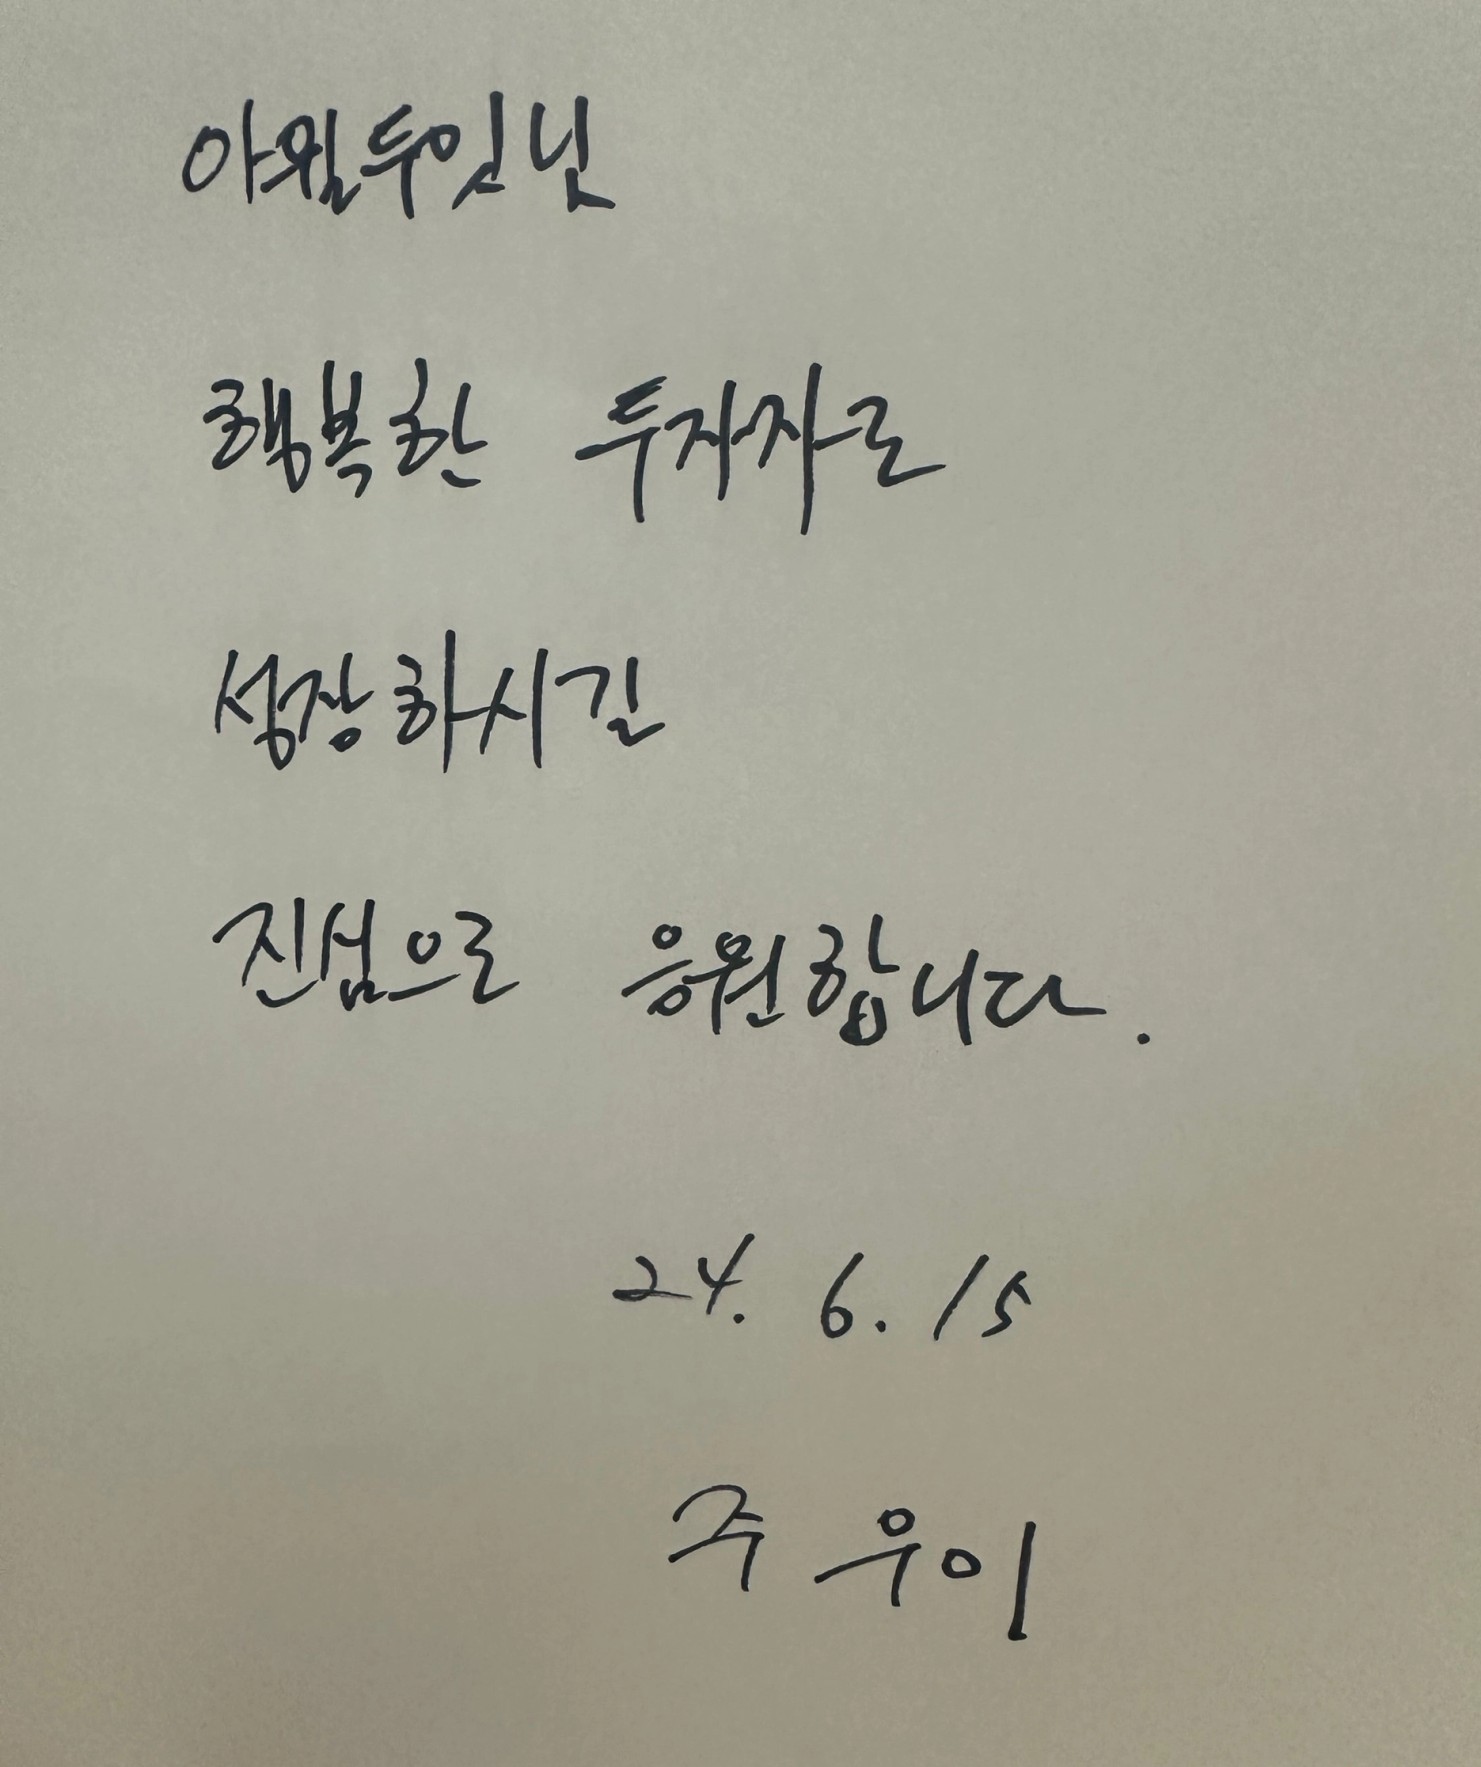 아윌두잇님
행복한 투자자로
성장하시길
진심으로 응원합니다.
24. 6. 15
주우이